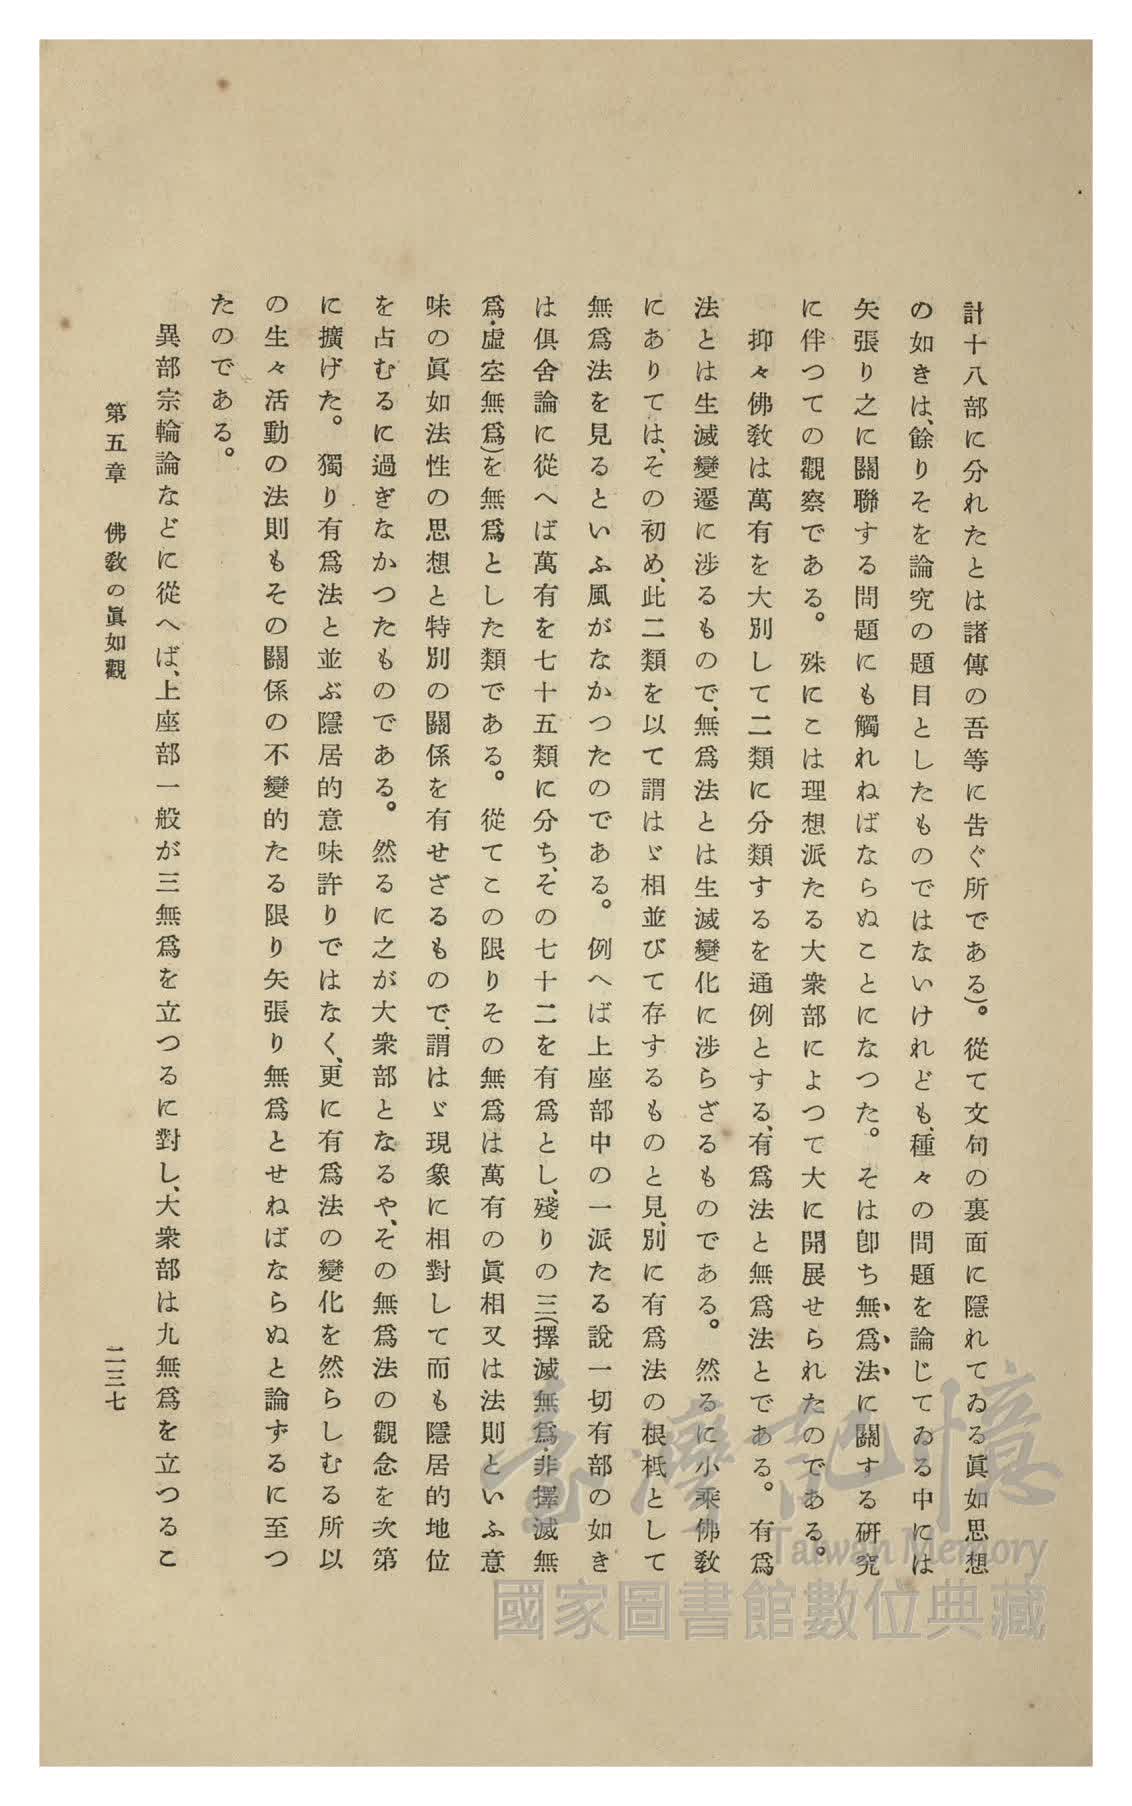 計十八部に分れたとは諸傳の吾等に吿ぐ所である)。從て文句の裏面に隱れてゐる眞如思想
の如きは、餘りそを論究の題目としたものではないけれども、種々の問題を論じてゐる中には
矢張り之に關聯する問題にも觸れねばならぬことになつた。そは卽ち無爲法に關する硏究
に伴つての觀察である。殊にこは理想派たる大衆部によつて大に開展せられたのである。
抑々佛敎は萬有を大別して二類に分類するを通例とする、有爲法と無爲法とである。有爲
法とは生滅變遷に涉るもので、無爲法とは生滅變化に涉らざるものである。然るに小乘佛敎
にありては、その初め、此二類を以て謂はゞ相並びて存するものと見、別に有爲法の根柢として
無爲法を見るといふ風がなかつたのである。例へば上座部中の一派たる說一切有部の如き
は俱舍論に從へば萬有を七十五類に分ち、その七十二を有爲とし、殘りの三(擇滅無爲・非擇滅無
爲・虛空無爲)を無爲とした類である。從てこの限りその無爲は萬有の眞相又は法則といふ意
味の眞如法性の思想と特別の關係を有せざるもので、謂はゞ現象に相對して而も隱居的地位
を占むるに過ぎなかつたものである。然るに之が大衆部となるや、その無爲法の觀念を次第
に擴げた。獨り有爲法と並ぶ隱居的意味許りではなく、更に有爲法の變化を然らしむる所以
の生々活動の法則もその關係の不變的たる限り矢張り無爲とせねばならぬと論ずるに至つ
たのである。
異部宗輪論などに從へば、上座部一般が三無爲を立つるに對し、大衆部は九無爲を立つるこ
第五章 佛敎の眞如觀 二三七
臺灣記憶
Taiwan Memory
國家圖書館數位典藏